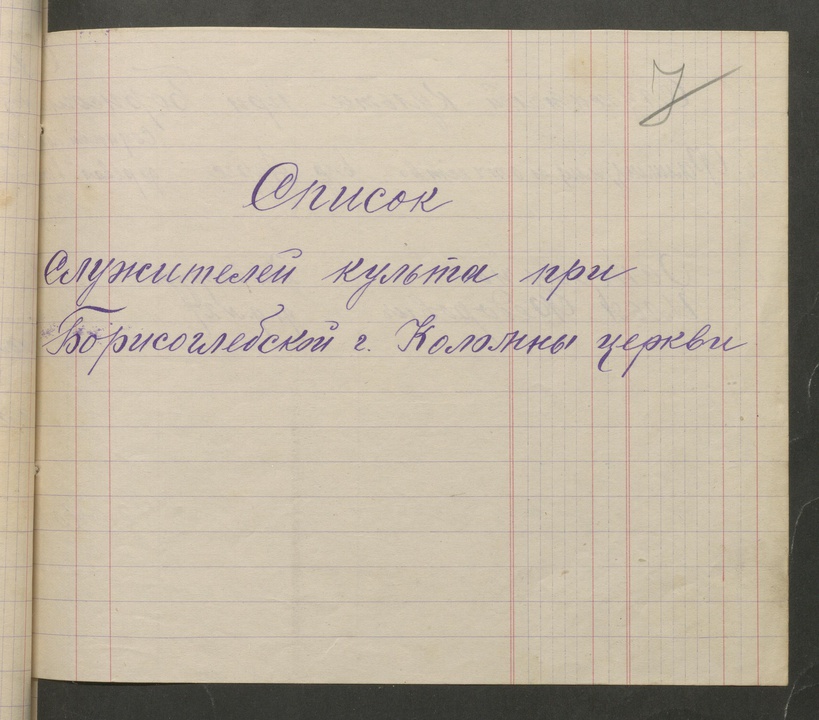 7
Список
служителей культа при
Борисоглебской г. Коломны церкви